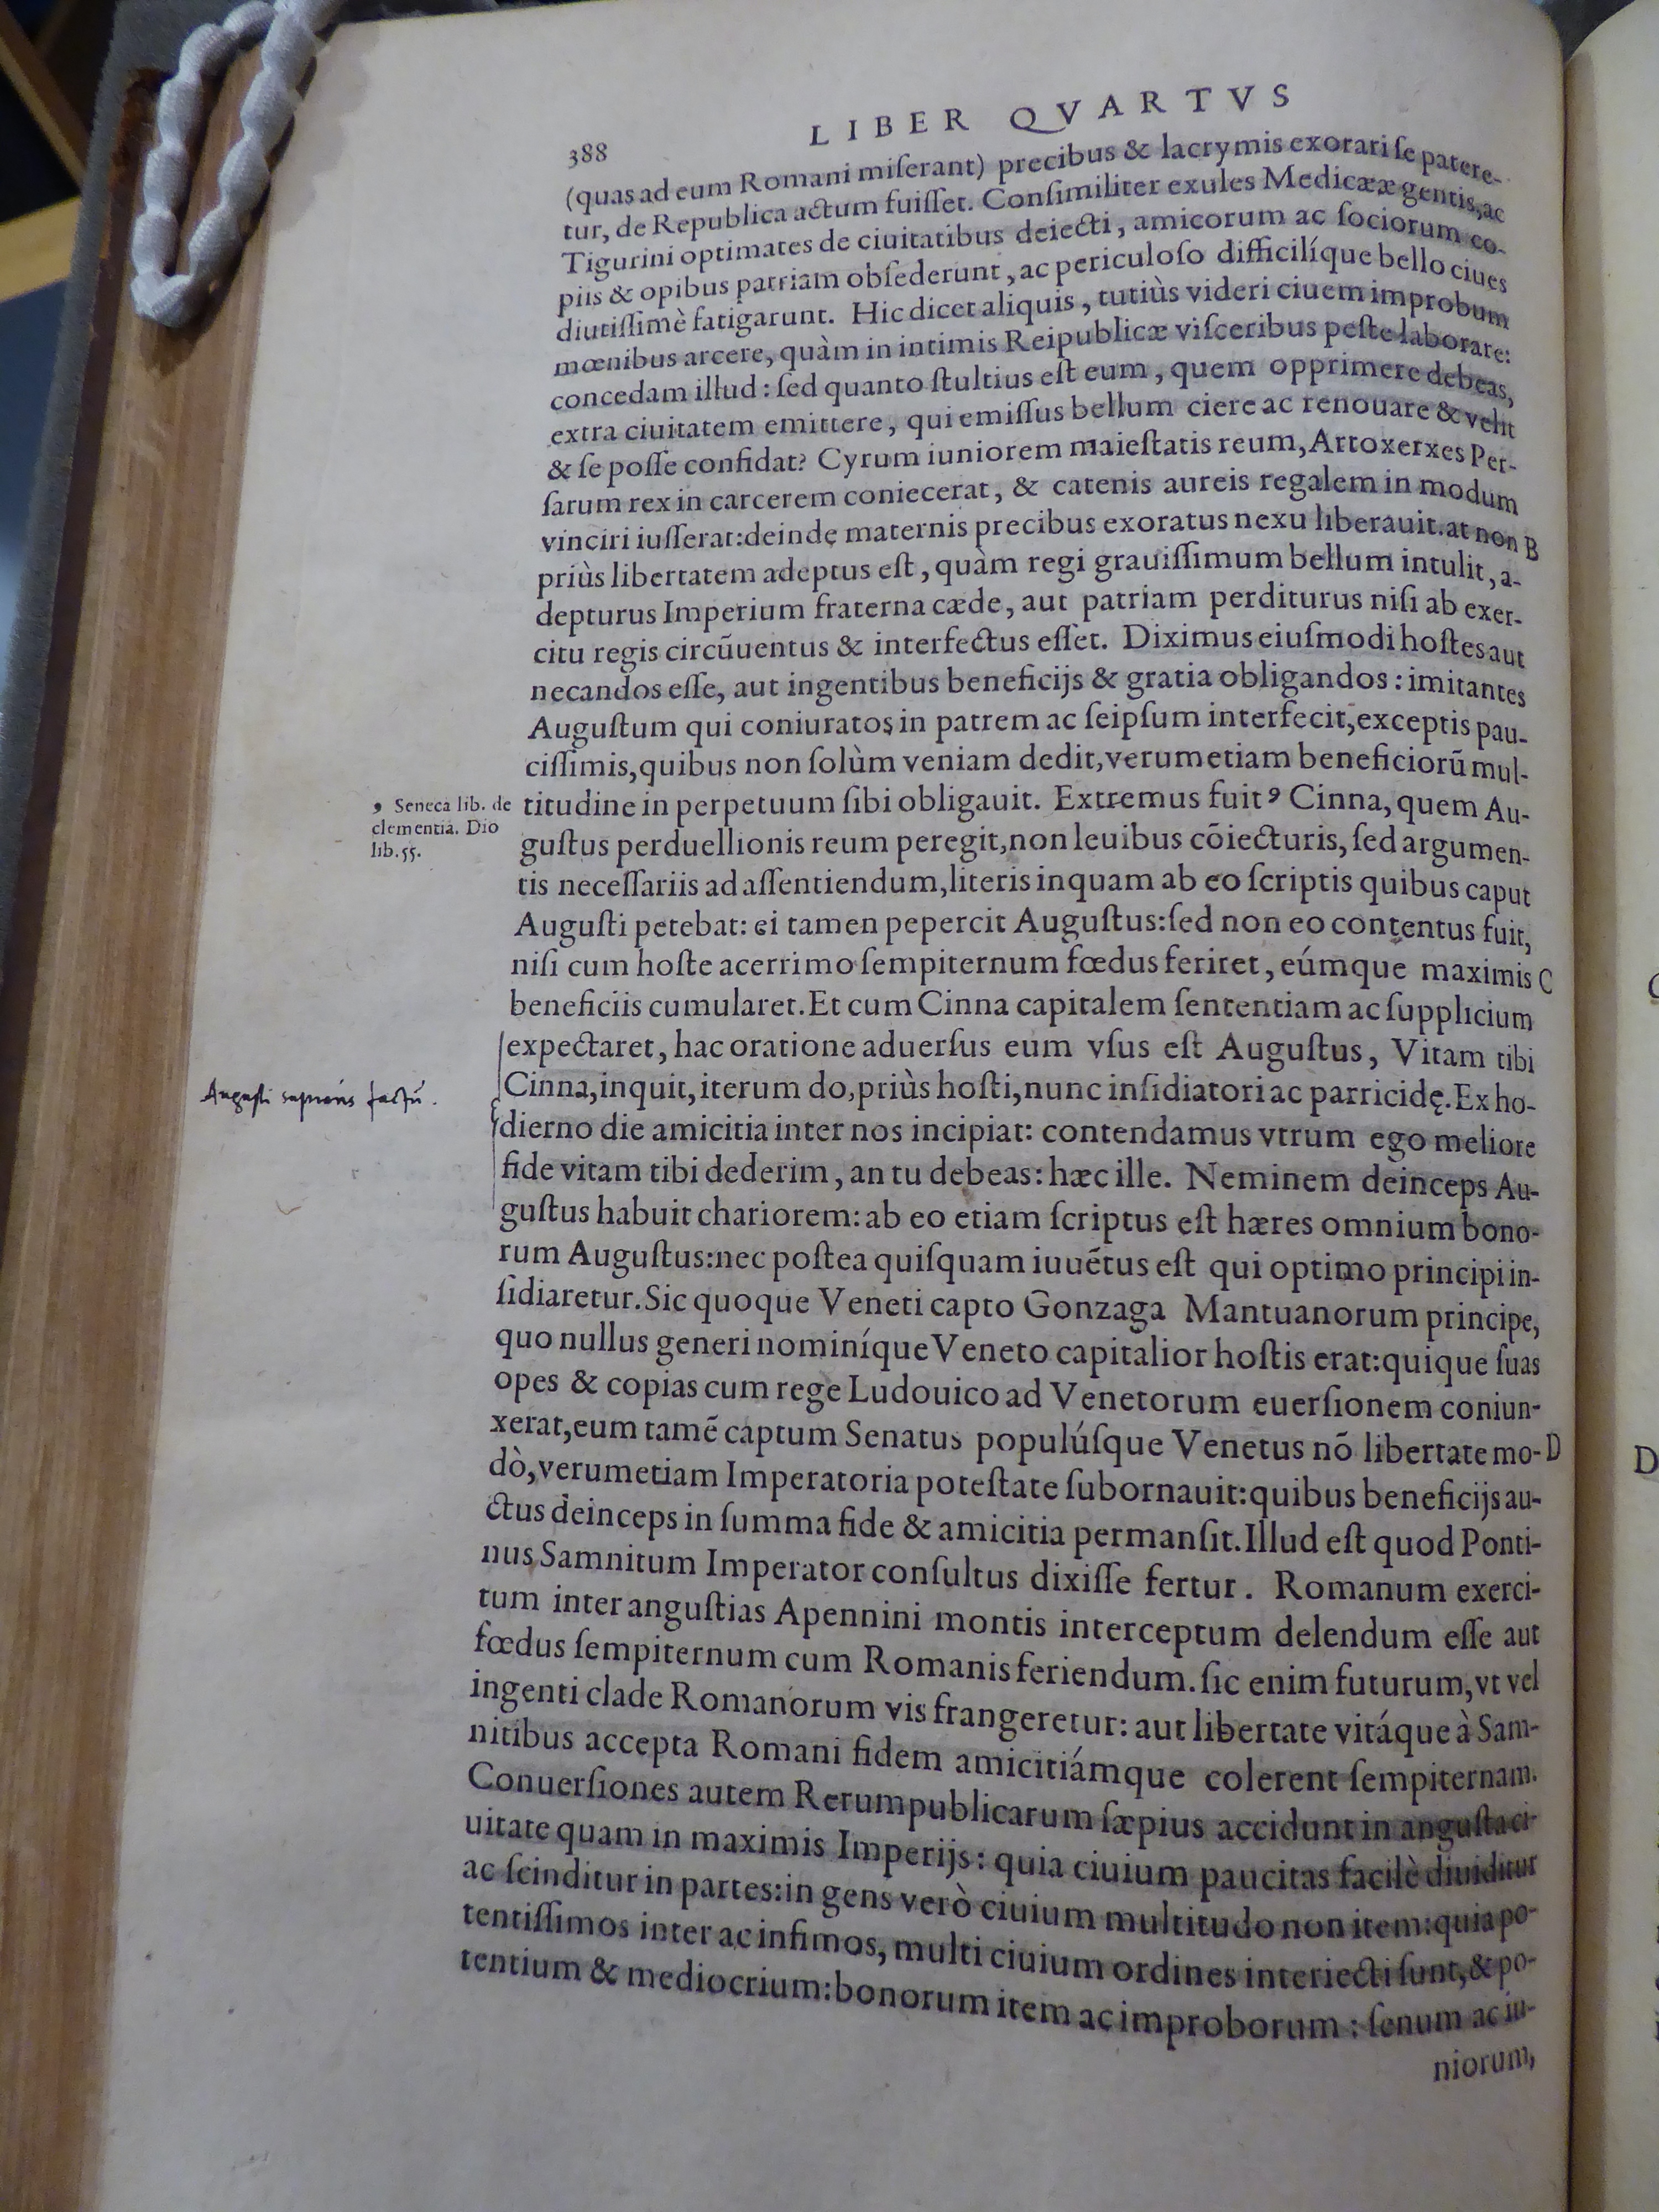 388
LIBER QVARTVS
(quas ad eum Romani miſerant) precibus & lacrymis exorari ſe patere-
tur, de Republica actum fuiſſet. Conſimiliter exules Medicææ gentis, ac
Tigurini optimates de ciuitatibus deiecti, amicorum ac ſociorum co-
piis & opibus patriam obſederunt, ac periculoſo difficilíque bello ciues
diutiſſimè fatigarunt. Hic dicet aliquis, tutiùs videri ciuem improbum
mœnibus arcere, quàm in intimis Reipublicæ viſceribus peſte laborare:
concedam illud: ſed quanto ſtultius eſt eum, quem opprimere debeas,
extra ciuitatem emittere, qui emiſſus bellum ciere ac renouare & velit
& ſe poſſe confidat? Cyrum iuniorem maieſtatis reum, Artoxerxes Per-
ſarum rex in carcerem coniecerat, & catenis aureis regalem in modum
vinciri iuſſerat: deindę maternis precibus exoratus nexu liberauit. at non B
priùs libertatem adeptus eſt, quàm regi grauiſſimum bellum intulit, a-
depturus Imperium fraterna cæde, aut patriam perditurus niſi ab exer-
citu regis circũuentus & interfectus eſſet. Diximus eiuſmodi hoſtes aut
necandos eſſe, aut ingentibus beneficijs & gratia obligandos: imitantes
Auguſtum qui coniuratos in patrem ac ſeipſum interfecit, exceptis pau-
ciſſimis, quibus non ſolùm veniam dedit, verumetiam beneficiorũ mul-
titudine in perpetuum ſibi obligauit. Extremus fuit 9 Cinna, quem Au-
guſtus perduellionis reum peregit, non leuibus cõiecturis, ſed argumen-
tis neceſſariis ad aſſentiendum, literis inquam ab eo ſcriptis quibus caput
Auguſti petebat: ei tamen pepercit Auguſtus: ſed non eo contentus fuit,
niſi cum hoſte acerrimo ſempiternum fœdus feriret, eúmque maximis C
beneficiis cumularet. Et cum Cinna capitalem ſententiam ac ſupplicium
expectaret, hac oratione aduerſus eum vſus eſt Auguſtus, Vitam tibi
Cinna, inquit, iterum do, priùs hoſti, nunc inſidiatori ac parricidę. Ex ho-
dierno die amicitia inter nos incipiat: contendamus vtrum ego meliore
fide vitam tibi dederim, an tu debeas: hæc ille. Neminem deinceps Au-
guſtus habuit chariorem: ab eo etiam ſcriptus eſt hæres omnium bono-
rum Auguſtus: nec poſtea quiſquam iuuẽtus eſt qui optimo principi in-
ſidiaretur. Sic quoque Veneti capto Gonzaga Mantuanorum principe,
quo nullus generi nominíque Veneto capitalior hoſtis erat: quique ſuas
opes & copias cum rege Ludouico ad Venetorum euerſionem coniun-
xerat, eum tamẽ captum Senatus populúſque Venetus nõ libertate mo- D
dò, verumetiam Imperatoria poteſtate ſubornauit: quibus beneficijs au-
ctus deinceps in ſumma fide & amicitia permanſit. Illud eſt quod Ponti-
nus Samnitum Imperator conſultus dixiſſe fertur. Romanum exerci-
tum inter anguſtias Apennini montis interceptum delendum eſſe aut
fœdus ſempiternum cum Romanis feriendum. ſic enim futurum, vt vel
ingenti clade Romanorum vis frangeretur: aut libertate vitáque à Sam-
nitibus accepta Romani fidem amicitiámque colerent ſempiternam.
Conuerſiones autem Rerumpublicarum ſæpius accidunt in anguſta ci-
uitate quam in maximis Imperijs: quia ciuium paucitas facilè diuiditur
ac ſcinditur in partes: in gens verò ciuium multitudo non item: quia po-
tentiſſimos inter ac infimos, multi ciuium ordines interiecti ſunt, & po-
tentium & mediocrium: bonorum item ac improborum: ſenum ac iu-
niorum,
9 Seneca lib. de
clementia. Dio
lib. 55.
Augusti sapiens factũ.
C
D